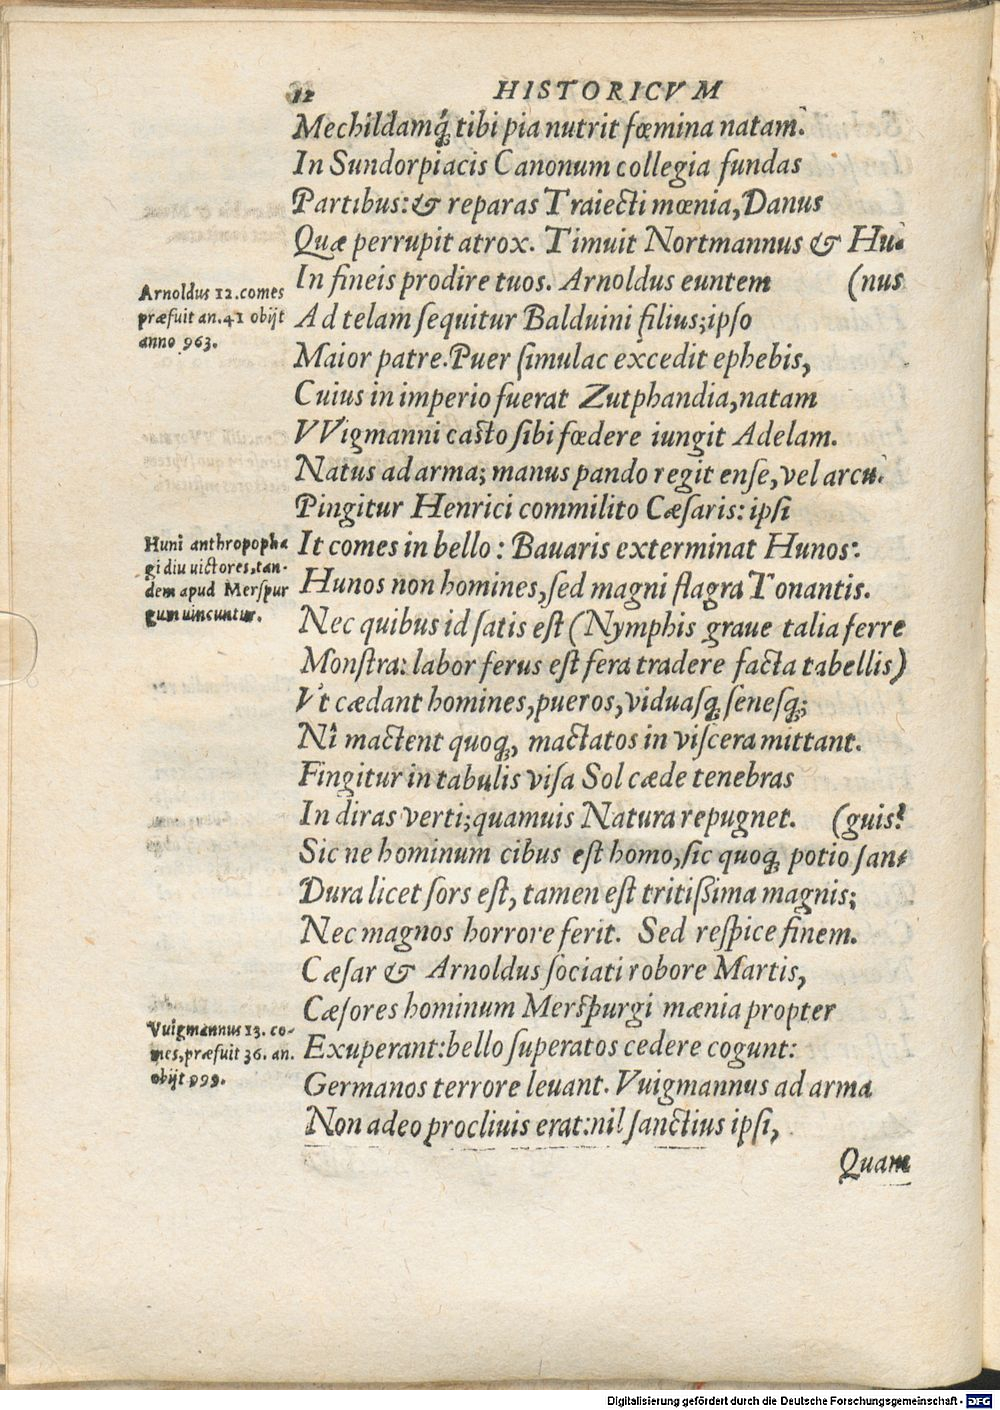 12
HISTORICVM
Mechildamq́; tibi pia nutrit fœmina natam.
In Sundorpiacis Canonum collegia fundas
Partibus: & reparas Traiecti mœnia, Danus
Quæ perrupit atrox. Timuit Nortmannus & Hu-
In fineis prodire tuos. Arnoldus euntem (nus
Arnoldus 12. comes
præfuit an. 41 obijt
anno 963.
Ad telam ſequitur Balduini filius; ipſo
Maior patre. Puer ſimulac excedit ephebis,
Cuius in imperio fuerat Zutphandia, natam
VVigmanni caſto ſibi fœdere iungit Adelam.
Natus ad arma; manus pando regit enſe, vel arcu.
Pingitur Henrici commilito Cæſaris: ipſi
Huni anthropopha
gi diu uictores, tan-
dem apud Merſpur
gum uincuntur.
It comes in bello: Bauaris exterminat Hunos:
Hunos non homines, ſed magni flagra Tonantis.
Nec quibus id ſatis eſt (Nymphis graue talia ferre
Monſtra: labor ferus eſt fera tradere facta tabellis)
Vt cædant homines, pueros, viduasq; ſenesq;;
Nî mactent quoq;, mactatos in viſcera mittant.
Fingitur in tabulis viſa Sol cæde tenebras
In diras verti; quamuis Natura repugnet. (guis?
Sic ne hominum cibus eſt homo, ſic quoq; potio ſan-
Dura licet ſors eſt, tamen eſt tritiſsima magnis;
Nec magnos horrore ferit. Sed reſpice finem.
Cæſar & Arnoldus ſociati robore Martis,
Cæſores hominum Merspurgi mænia propter
Vuigmannus 13. co-
mes, præfuit 36. an.
obijt 999.
Exuperant: bello ſuperatos cedere cogunt:
Germanos terrore leuant. Vuigmannus ad arma
Non adeo procliuis erat: nil ſanctius ipſi,
Quam
Digitalisierung gefördert durch die Deutsche Forschungsgemeinschaft - DFG